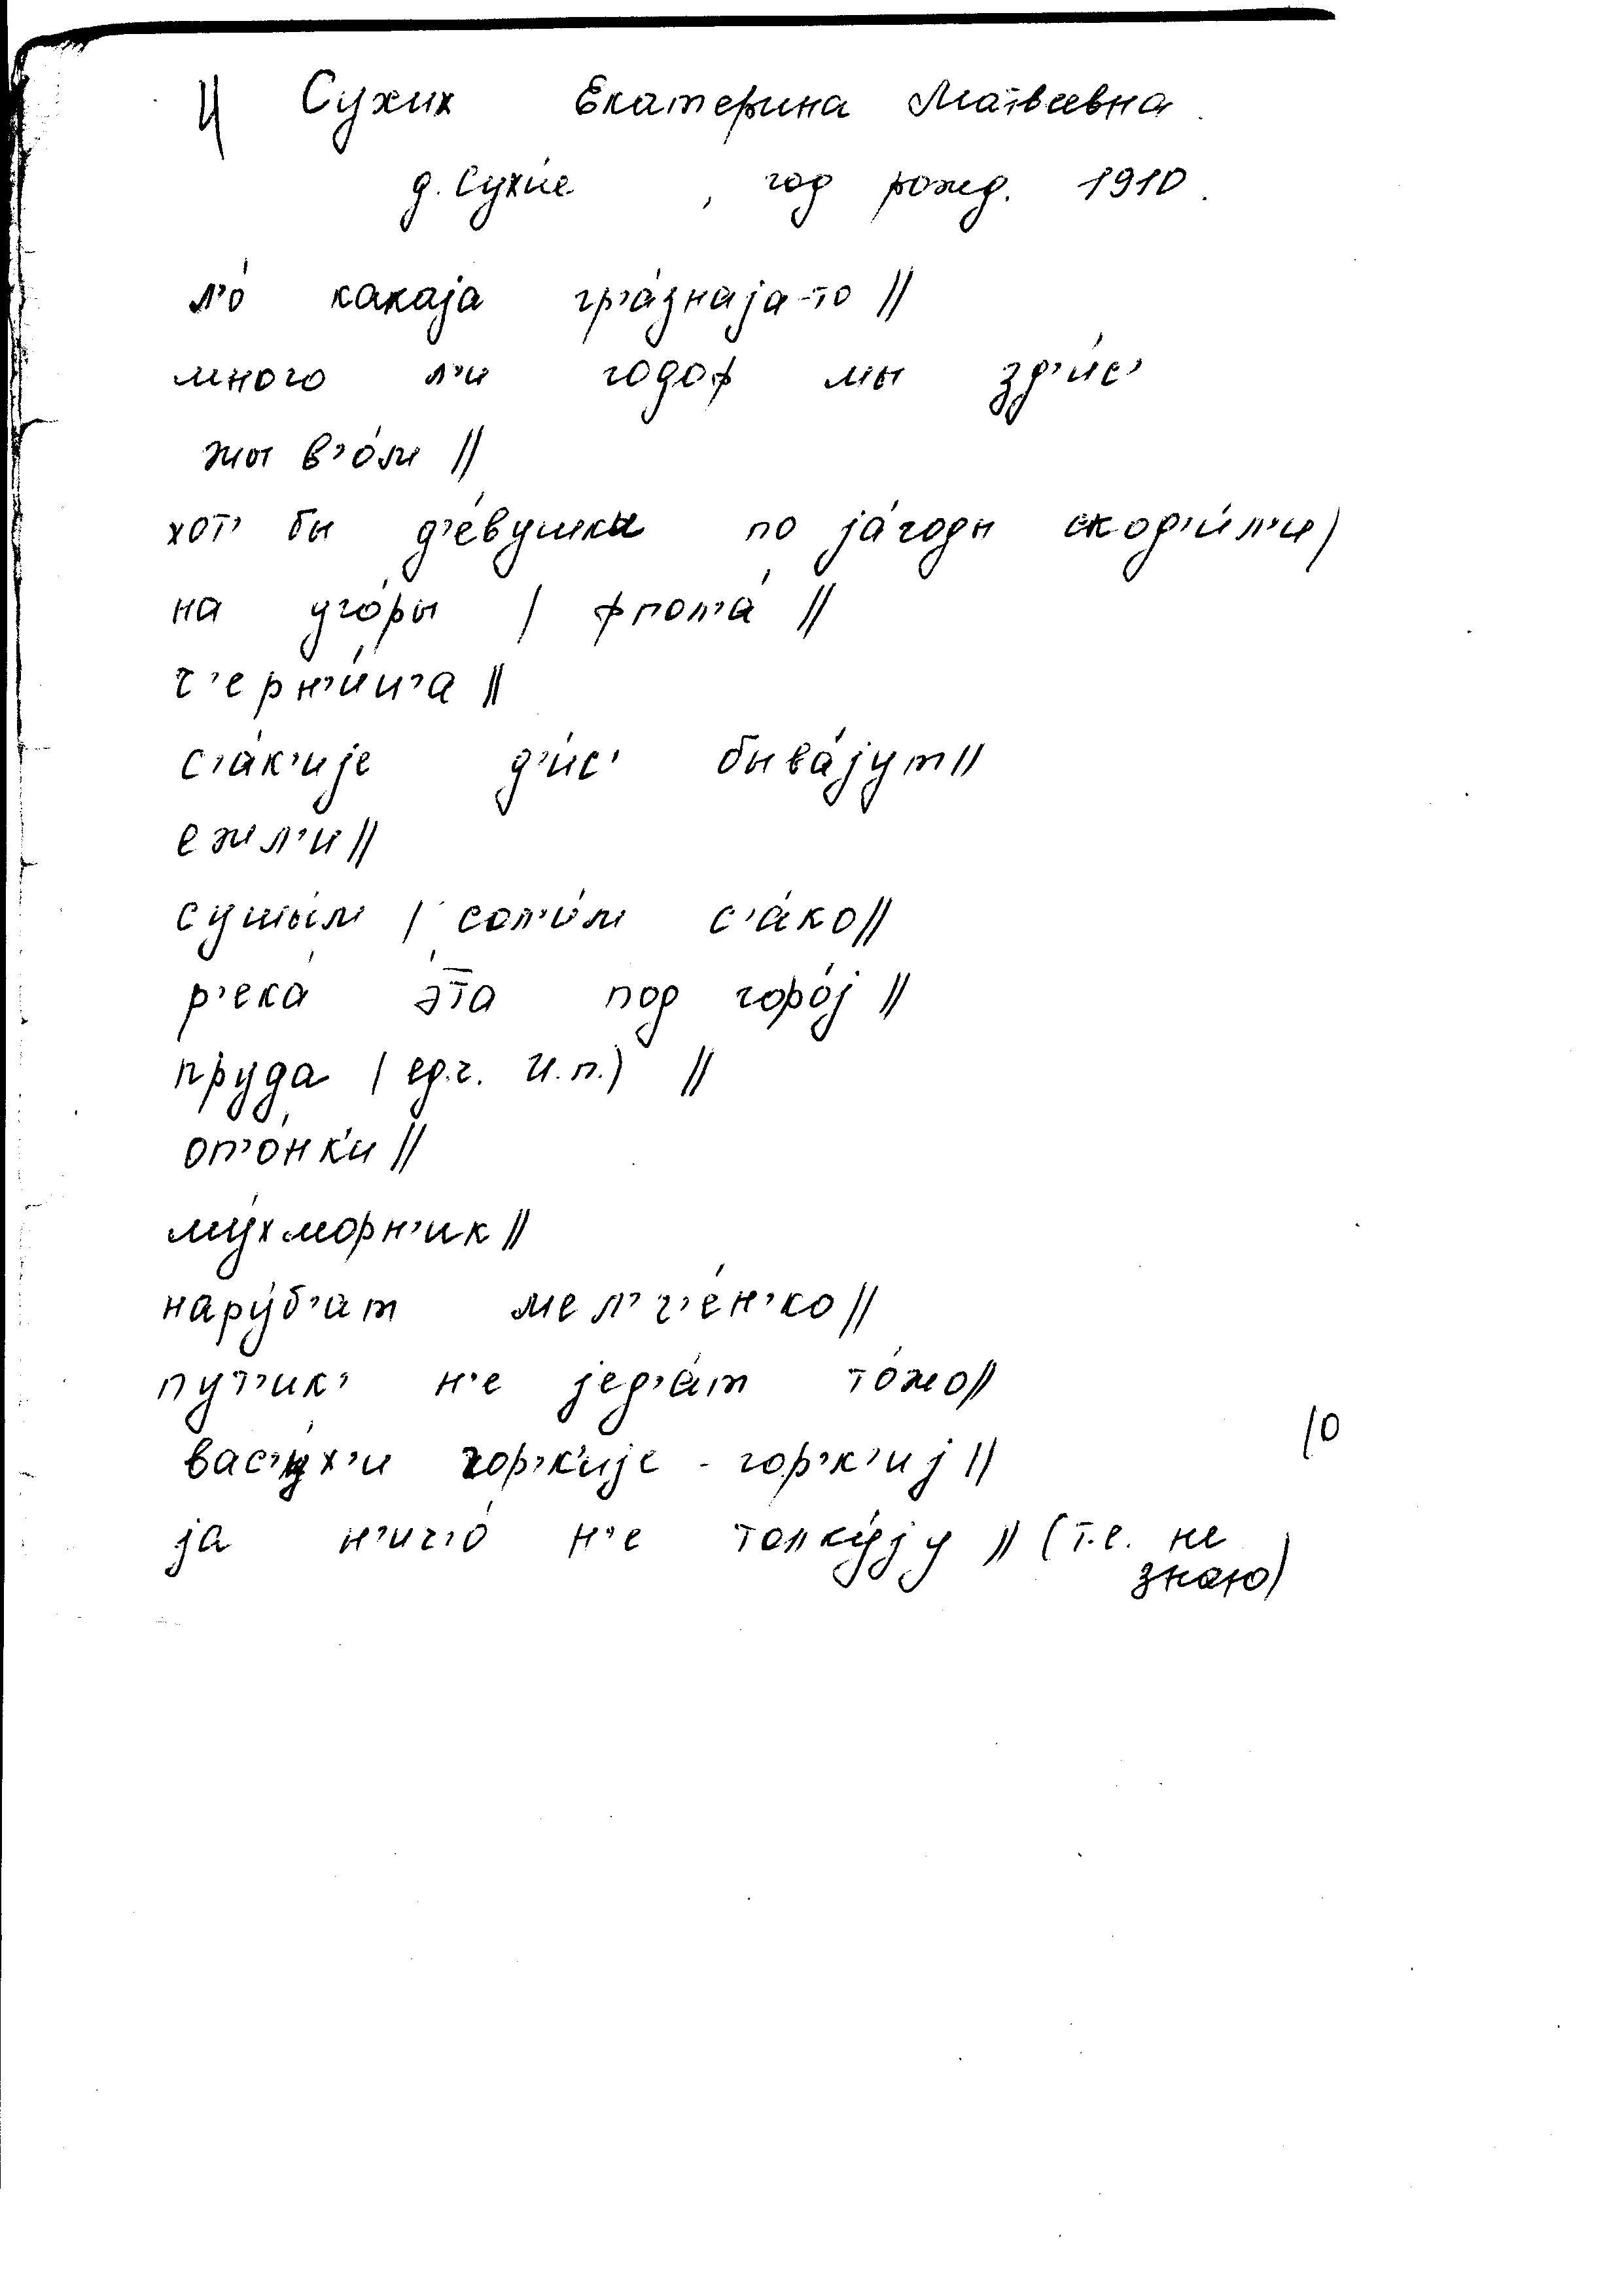 Ц Сухих Екатерина Матвеевна.
д. Сухие, год рожд. 1910.
л'о́ какаjа гр'а́знаjа-то ||
много л'и годоф мы зд'и́с'
жыв'о́м ||
хот' бы д'е́вушкы по jа́годы скод'и́л'и |
на уго́ры | фпол'а́ ||
ч'ерн'и́ц'а ||
с'а́к'иjе д'и́с' быва́jут ||
ежл'и ||
сушы́м | сол'и́м с'а́ко ||
р'ека́ э́та под горо́j ||
пруда (ед.ч. И.п.) ||
оп'о́нк'и ||
му́хморн'ик ||
нару́б'ат мел'ч'е́н'ко ||
пут'ик' н'е jед'а́т то́жо ||
вас'у́х'и гор'к'иjе - гор'к'иj ||
10
jа н'ич'о́ н'е толку́jу || (т.е. не
знаю)